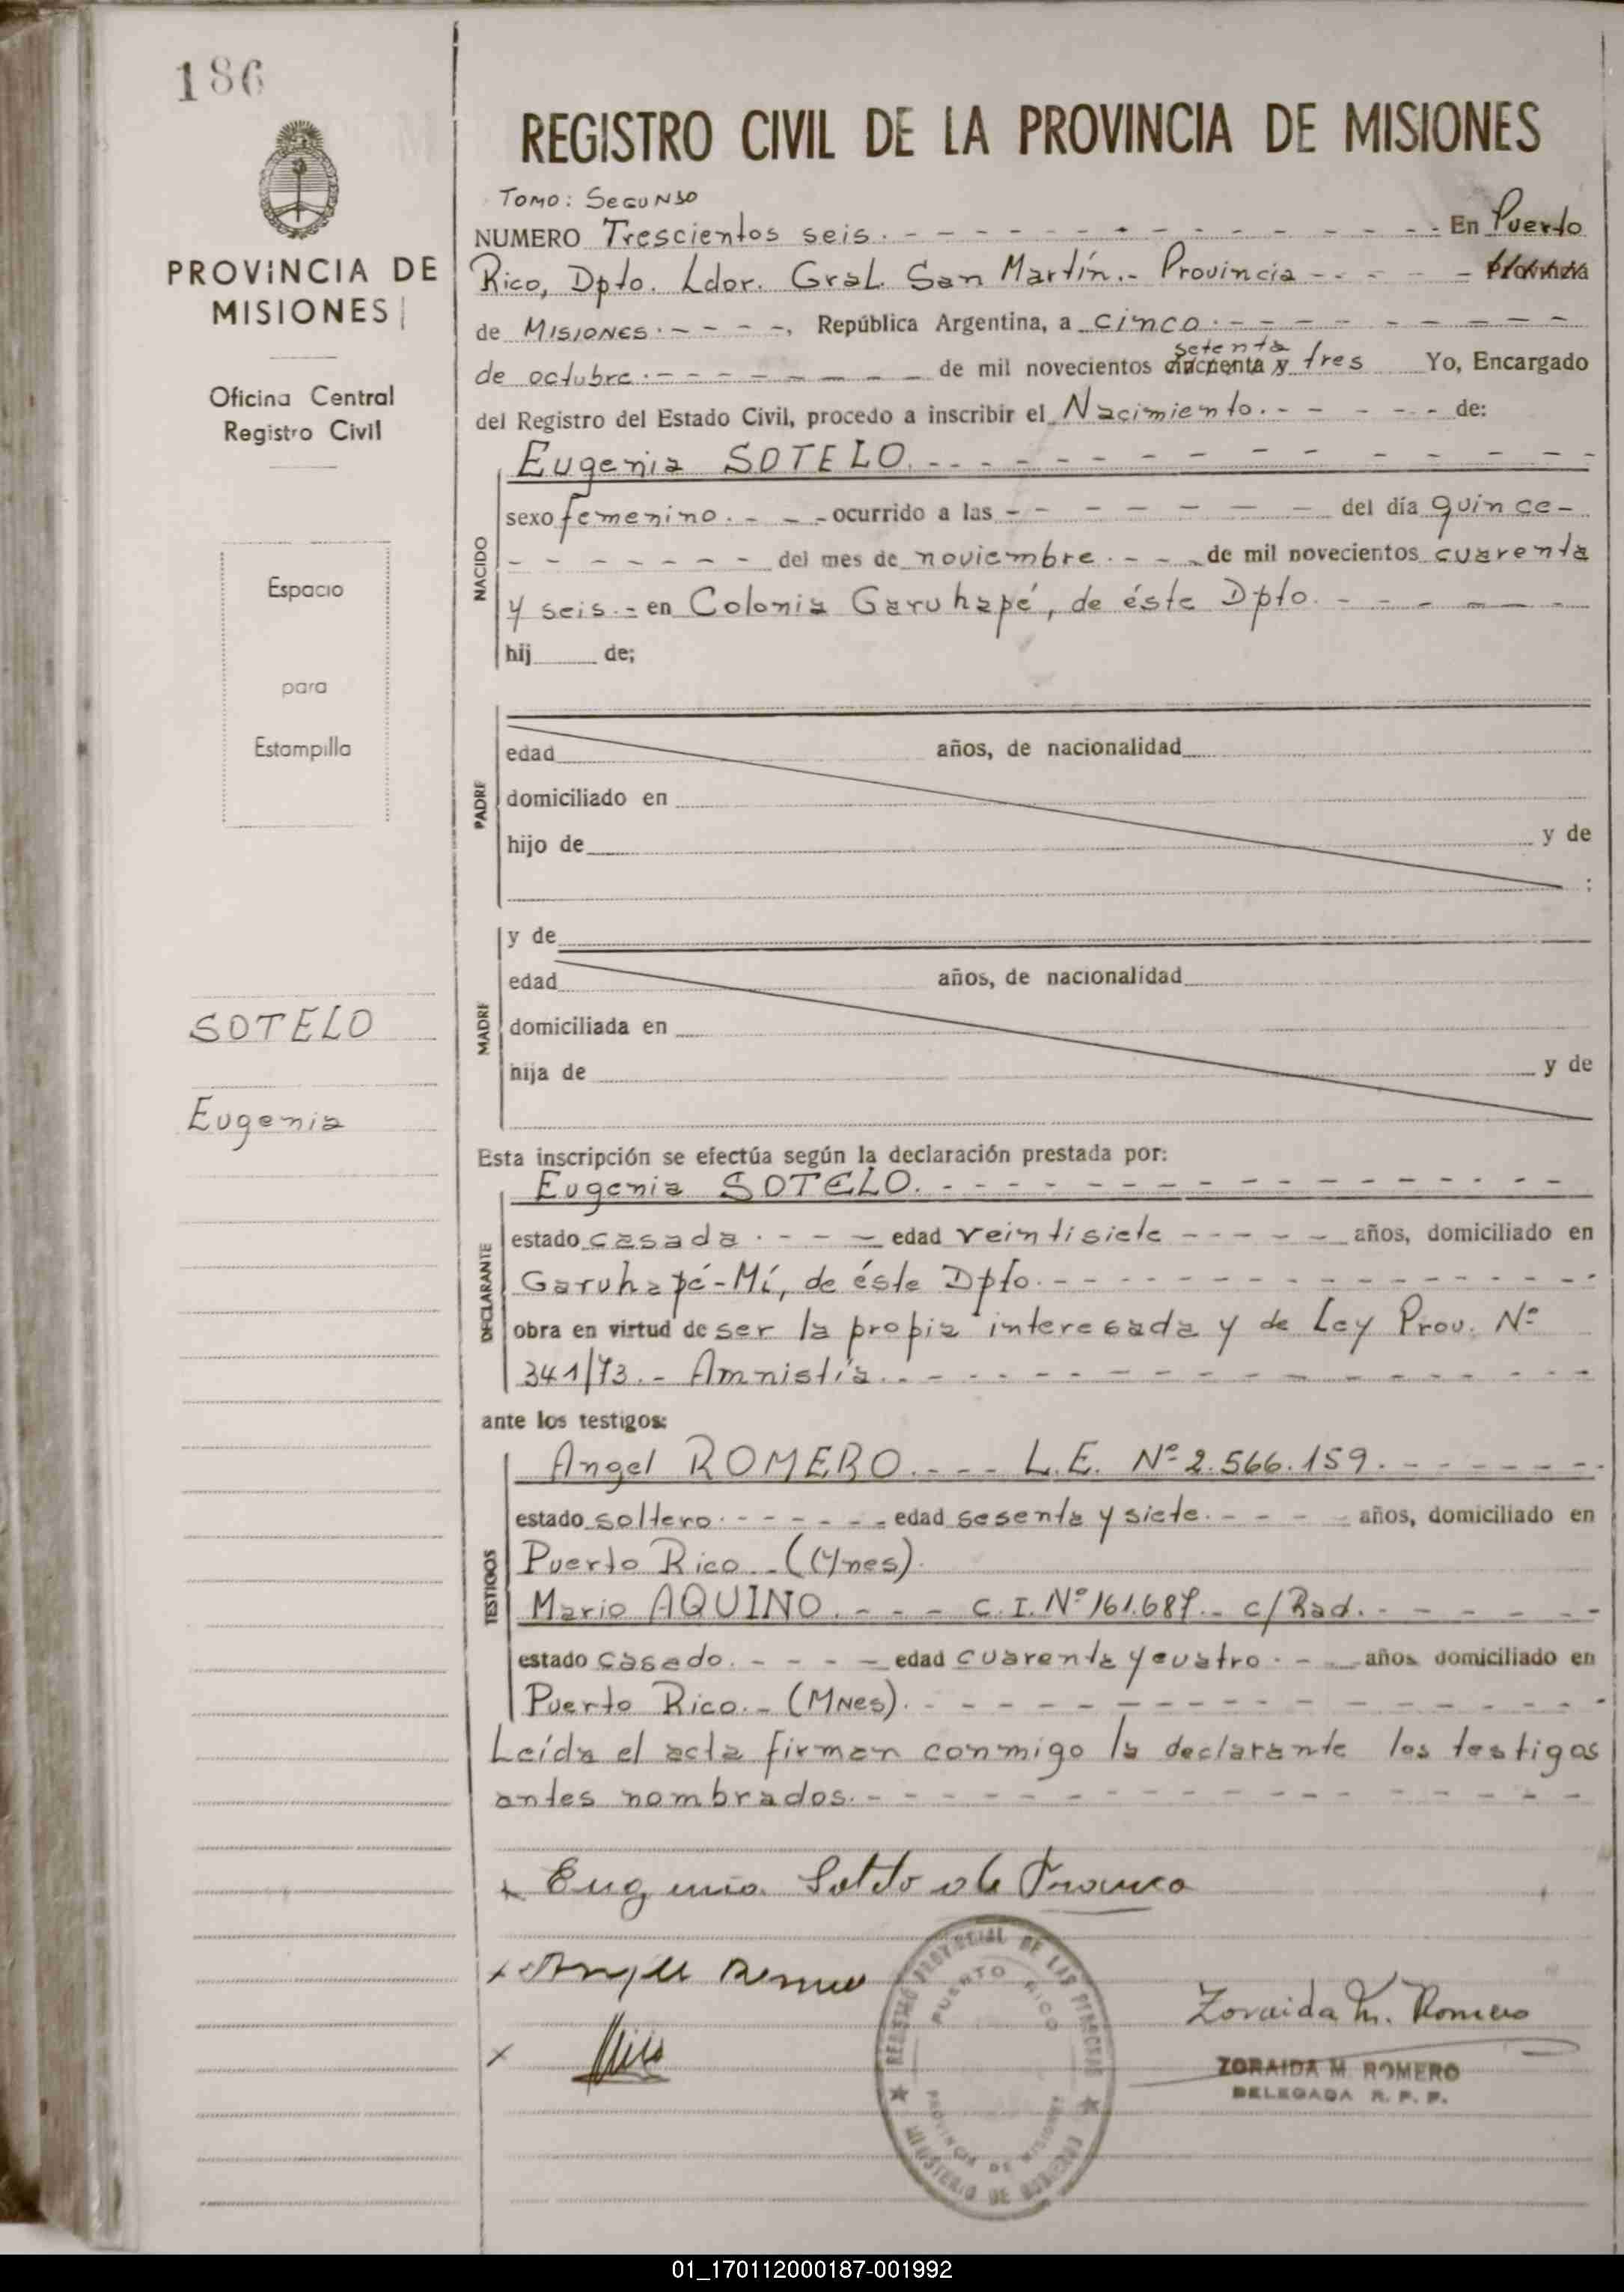 186
REGISTRO CIVIL DE LA PROVINCIA DE MISIONES
PROVINCIA DE
MISIONES
Oficina Central
Registro Civil
Espacio
para
Estampilla
SOTELO
Eugenia
Tomo: Segundo
NUMERO Trescientos seis. - - - En Puerto
Rico, Dpto. Ldor. Gral. San Martín.- Provincia - - - Provincia
de Misiones. - - - -, República Argentina, a cinco. - - -
setenta
de octubre. - - - de mil novecientos cincuenta y tres Yo, Encargado
del Registro del Estado Civil, procedo a inscribir el Nacimiento. - - - de:
NACIDO
Eugenia SOTELO. - - -
sexo femenino. - - - ocurrido a las - - - del día quince -
- - - del mes de noviembre. - - - de mil novecientos cuarenta
y seis. - en Colonia Garuhapé, de éste Dpto. - - -
hij de;
PADRE
edad años, de nacionalidad
domiciliado en
hijo de y de
:
MADRE
y de
edad años, de nacionalidad
domiciliada en
hija de y de
Esta inscripción se efectúa según la declaración prestada por:
DECLARANTE
Eugenia SOTELO. - - -
estado casada. - - - edad veintisiete - - - años, domiciliado en
Garuhapé-Mí, de éste Dpto. - - -
obra en virtud de ser la propia interesada y de Ley Prov. Nº
341/73.- Amnistía. - - -
ante los testigos:
TESTIGOS
Angel ROMERO. - - - L.E. Nº 2.566.159. - - -
estado soltero. - - - edad sesenta y siete. - - - años, domiciliado en
Puerto Rico.-(Mnes).
Mario AQUINO. - - - C.I. Nº 161.687.- c/Rad. - - -
estado casado. - - - edad cuarenta y cuatro. - - - años domiciliado en
Puerto Rico.-(Mnes). - - -
Leída el acta firman conmigo la declarante los testigos
antes nombrados. - - -
x Eugenia Sotelo de Franco
x Angel Romero
x
Zoraida M. Romero
ZORAIDA M. ROMERO
DELEGADA R. P. P.
REGISTRO PROVINCIAL DE LAS PERSONAS
PUERTO RICO
PROVINCIA DE MISIONES
MINISTERIO DE GOBIERNO
01_170112000187-001992